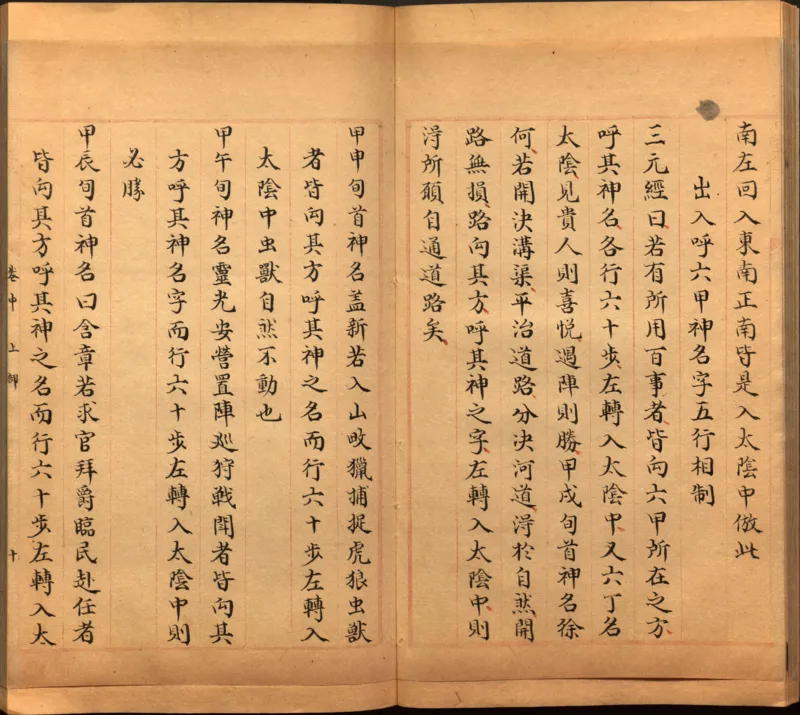 南左回入東南正南皆是入太陰中倣此
出入呼六甲神名字五行相制
三元經曰若有所用百事者皆向六甲所在之方
呼其神名各行六十步左轉入太陰中又六丁名
太陰見貴人則喜悦遇陣則勝甲戌旬首神名徐
何若開決溝渠平治道路分決河道淂於自然開
路無損路向其方呼其神之字左轉入太陰中則
淂所願自通道路矣
甲申旬首神名盖新若入山畋獵捕捉虎狼虫獸
者皆向其方呼其神之名而行六十步左轉入
太陰中虫獸自然不動也
甲午旬神名靈光安營置陣巡狩戦鬪者皆向其
方呼其神名字而行六十步左轉入太陰中則
必勝
甲辰旬首神名曰含章若求官拜爵臨民赴任者
皆向其方呼其神之名而行六十步左轉入太
卷中 上卿 十